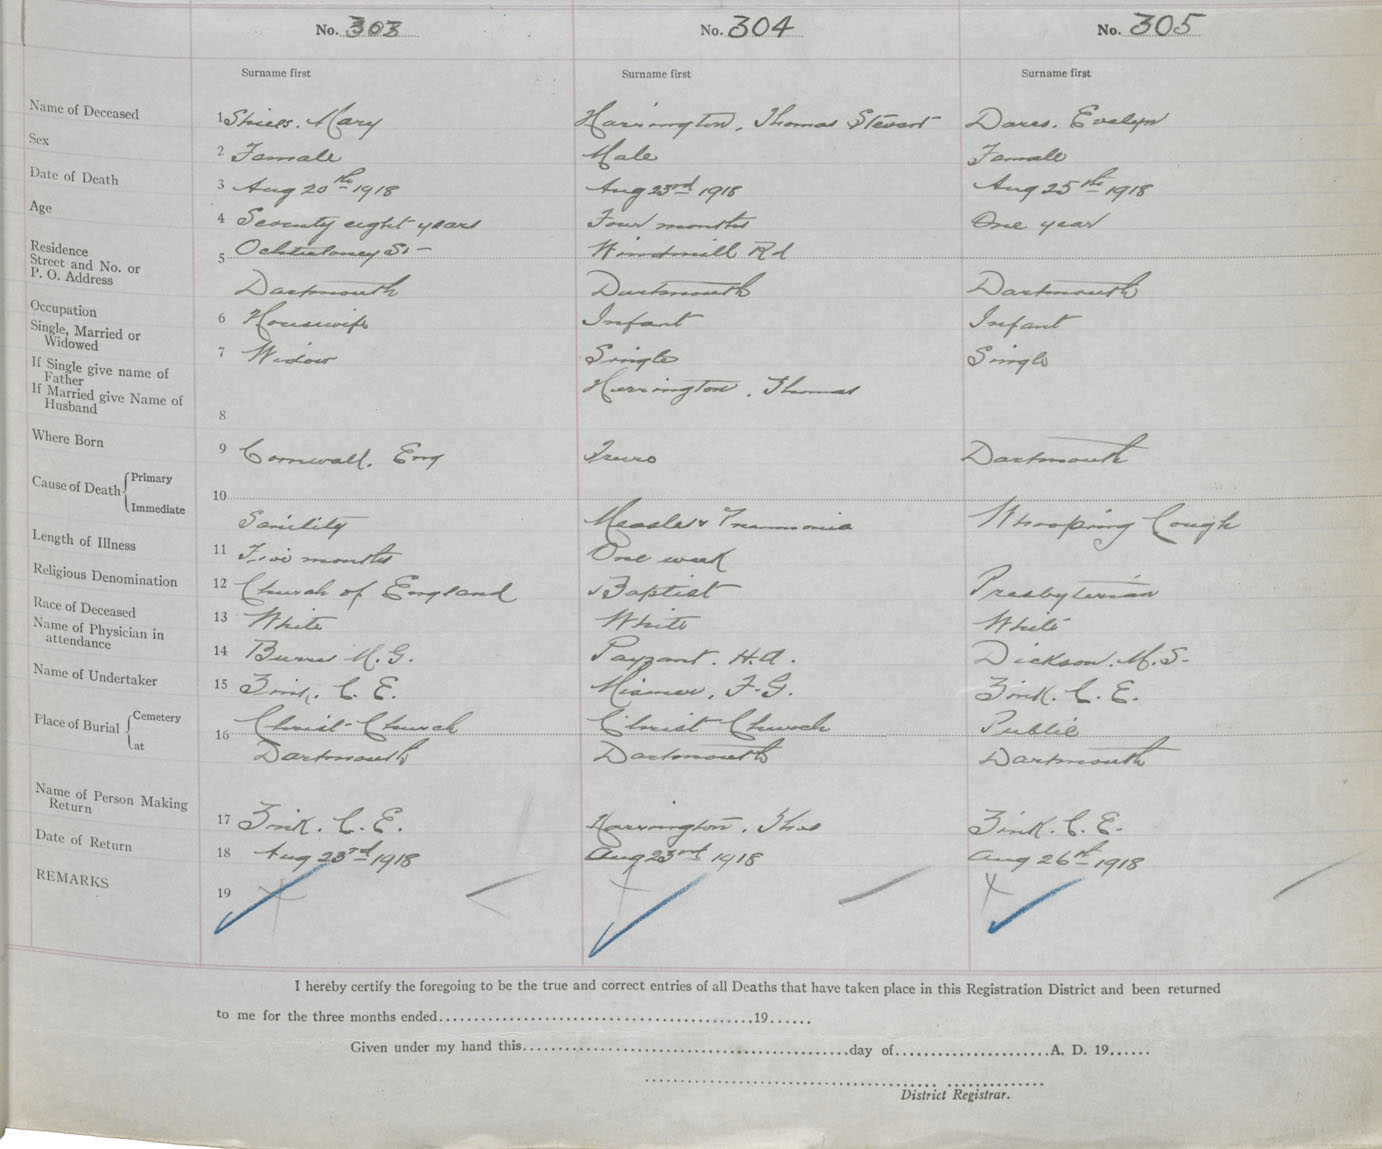 No. 303 No. 304 No. 305
Surname first Surname first Surname first
Name of Deceased 1 Shiers. Mary Harrington, Thomas Stewart Dares. Evelyn
Sex 2 Female Male Female
Date of Death 3 Aug 20th 1918 Aug 23rd 1918 Aug 25th 1918
Age 4 Seventy eight years Four months One year
Residence
Street and No. or 5 Ochterloney St Windmill Rd
P. O. Address Dartmouth Dartmouth Dartmouth
Occupation 6 Housewife Infant Infant
Single, Married or
Widowed 7 Widow Single Single
If Single give name of
Father Harrington, Thomas
If Married give Name of
Husband 8
Where Born 9 Cornwall, Eng Truro Dartmouth
Cause of Death Primary 10
Immediate Senility Measles & Pneumonia Whooping Cough
Length of Illness 11 months One week
Religious Denomination 12 Church of England Baptist Presbyterian
Race of Deceased 13 White White White
Name of Physician in
attendance 14 Burns M. G. Payzant. H. A. Dickson. M. S.
Name of Undertaker 15 Zink. C. E. Misener, F. G. Zink. C. E.
Place of Burial Cemetery 16 Christ Church Christ Church Public
at Dartmouth Dartmouth Dartmouth
Name of Person Making
Return 17 Zink. C. E. Harrington, Thos Zink. C. E.
Date of Return 18 Aug 23rd 1918 Aug 23rd 1918 Aug 26th 1918
REMARKS 19
I hereby certify the foregoing to be the true and correct entries of all Deaths that have taken place in this Registration District and been returned
to me for the three months ended............19......
Given under my hand this............day of............A. D. 19......
District Registrar.